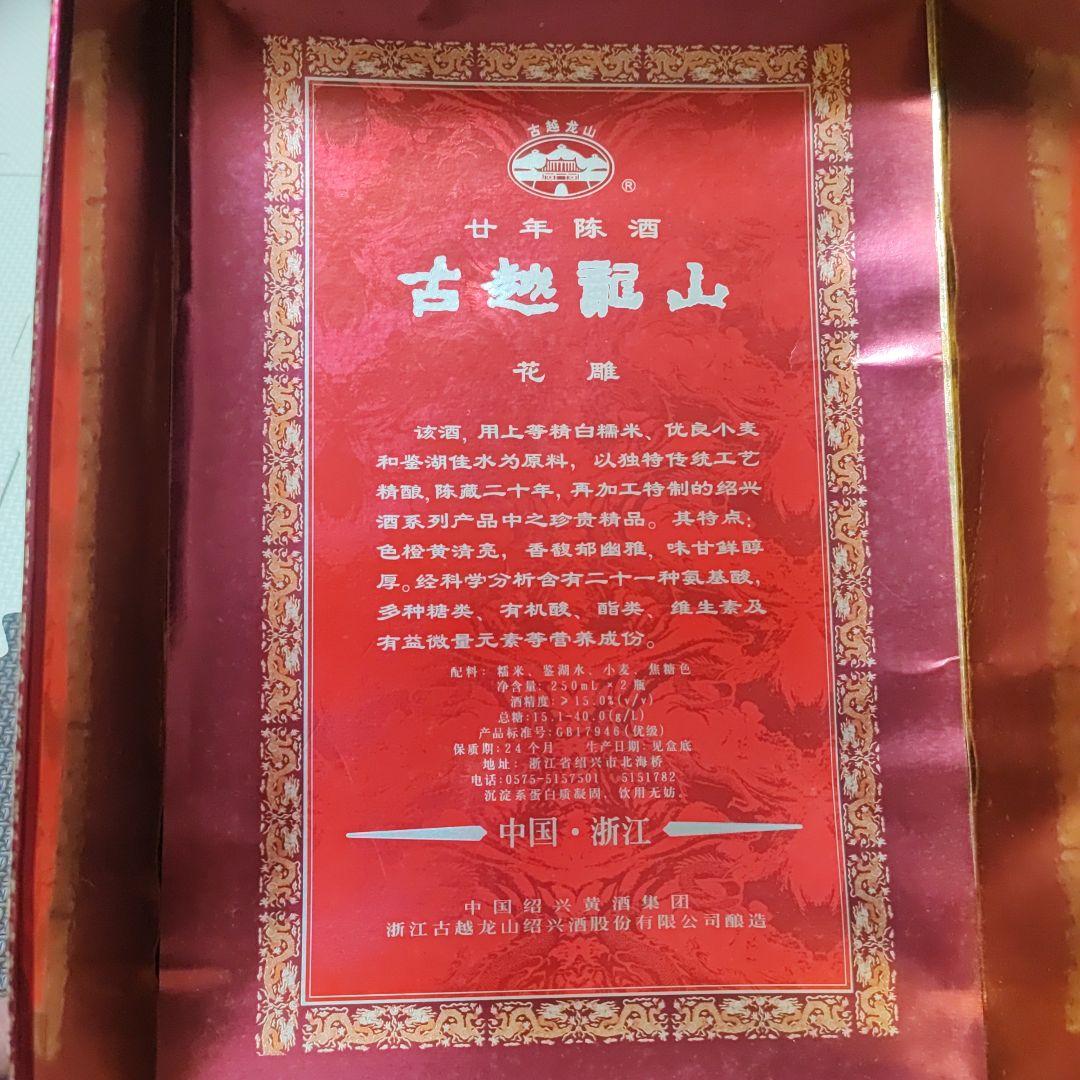 古越龙山
®
廿年陈酒
古越龍山
花雕
该酒，用上等精白糯米、优良小麦
和鉴湖佳水为原料，以独特传统工艺
精酿，陈藏二十年，再加工特制的绍兴
酒系列产品中之珍贵精品。其特点：
色橙黄清亮，香馥郁幽雅，味甘鲜醇
厚。经科学分析含有二十一种氨基酸，
多种糖类、有机酸、酯类、维生素及
有益微量元素等营养成份。
配料：糯米、鉴湖水、小麦、焦糖色
净含量：250mL×2瓶
酒精度：≥15.0%(v/v)
总糖：15.1-40.0(g/L)
产品标准号：GB17946(优级)
保质期：24个月 生产日期：见盒底
地址：浙江省绍兴市北海桥
电话：0575-5157501 5151782
沉淀系蛋白质凝固，饮用无妨。
中国·浙江
中国绍兴黄酒集团
浙江古越龙山绍兴酒股份有限公司酿造